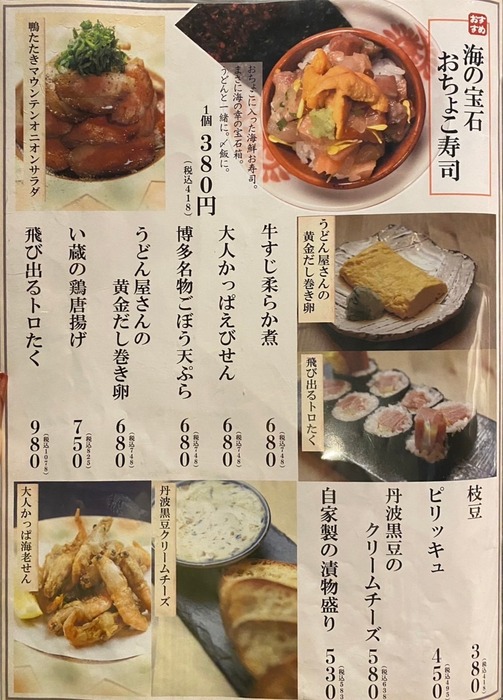 おすすめ
海の宝石
おちょこ寿司
おちょこに入った海鮮お寿司。
まさに海の幸の宝石箱。
うどんと一緒に。〆飯に。
1個 380円
(税込418)
鴨たたきマウンテンオニオンサラダ
うどん屋さんの
黄金だし巻き卵
飛び出るトロたく
牛すじ柔らか煮 680(税込748)
大人かっぱえびせん 680(税込748)
博多名物ごぼう天ぷら 680(税込748)
うどん屋さんの
黄金だし巻き卵 680(税込748)
い蔵の鶏唐揚げ 750(税込825)
飛び出るトロたく 980(税込1078)
枝豆 380(税込418)
ピリッキュ 450(税込495)
丹波黒豆の
クリームチーズ 580(税込638)
自家製の漬物盛り 530(税込583)
丹波黒豆クリームチーズ
大人かっぱ海老せん